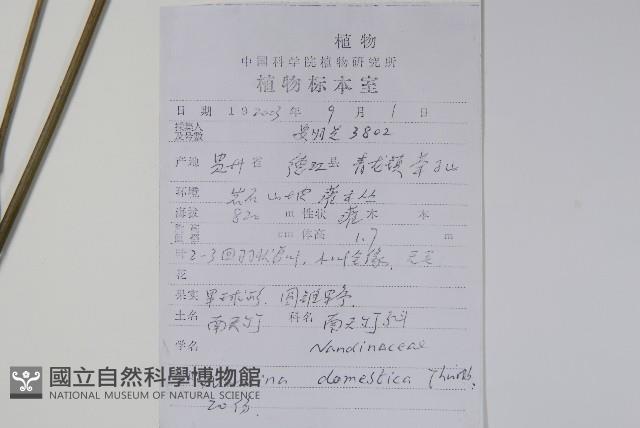 植物
中国科学院植物研究所
植物标本室
日 期 19 2003 年 9 月 1 日
采集人及号数 3802
产地 贵州省 德江县 青龙镇
环境 岩石山坡灌木丛
海拔 820 m 性状 灌木 木
cm 体高 1.7 m
叶 2-3回羽状复叶, 小叶全缘,
花
果实 果球形, 圆锥果序
土名 南天竹 科名 南天竹科
学名 Nandinaceae
domestica Thunb.
20份.
國立自然科學博物館
NATIONAL MUSEUM OF NATURAL SCIENCE